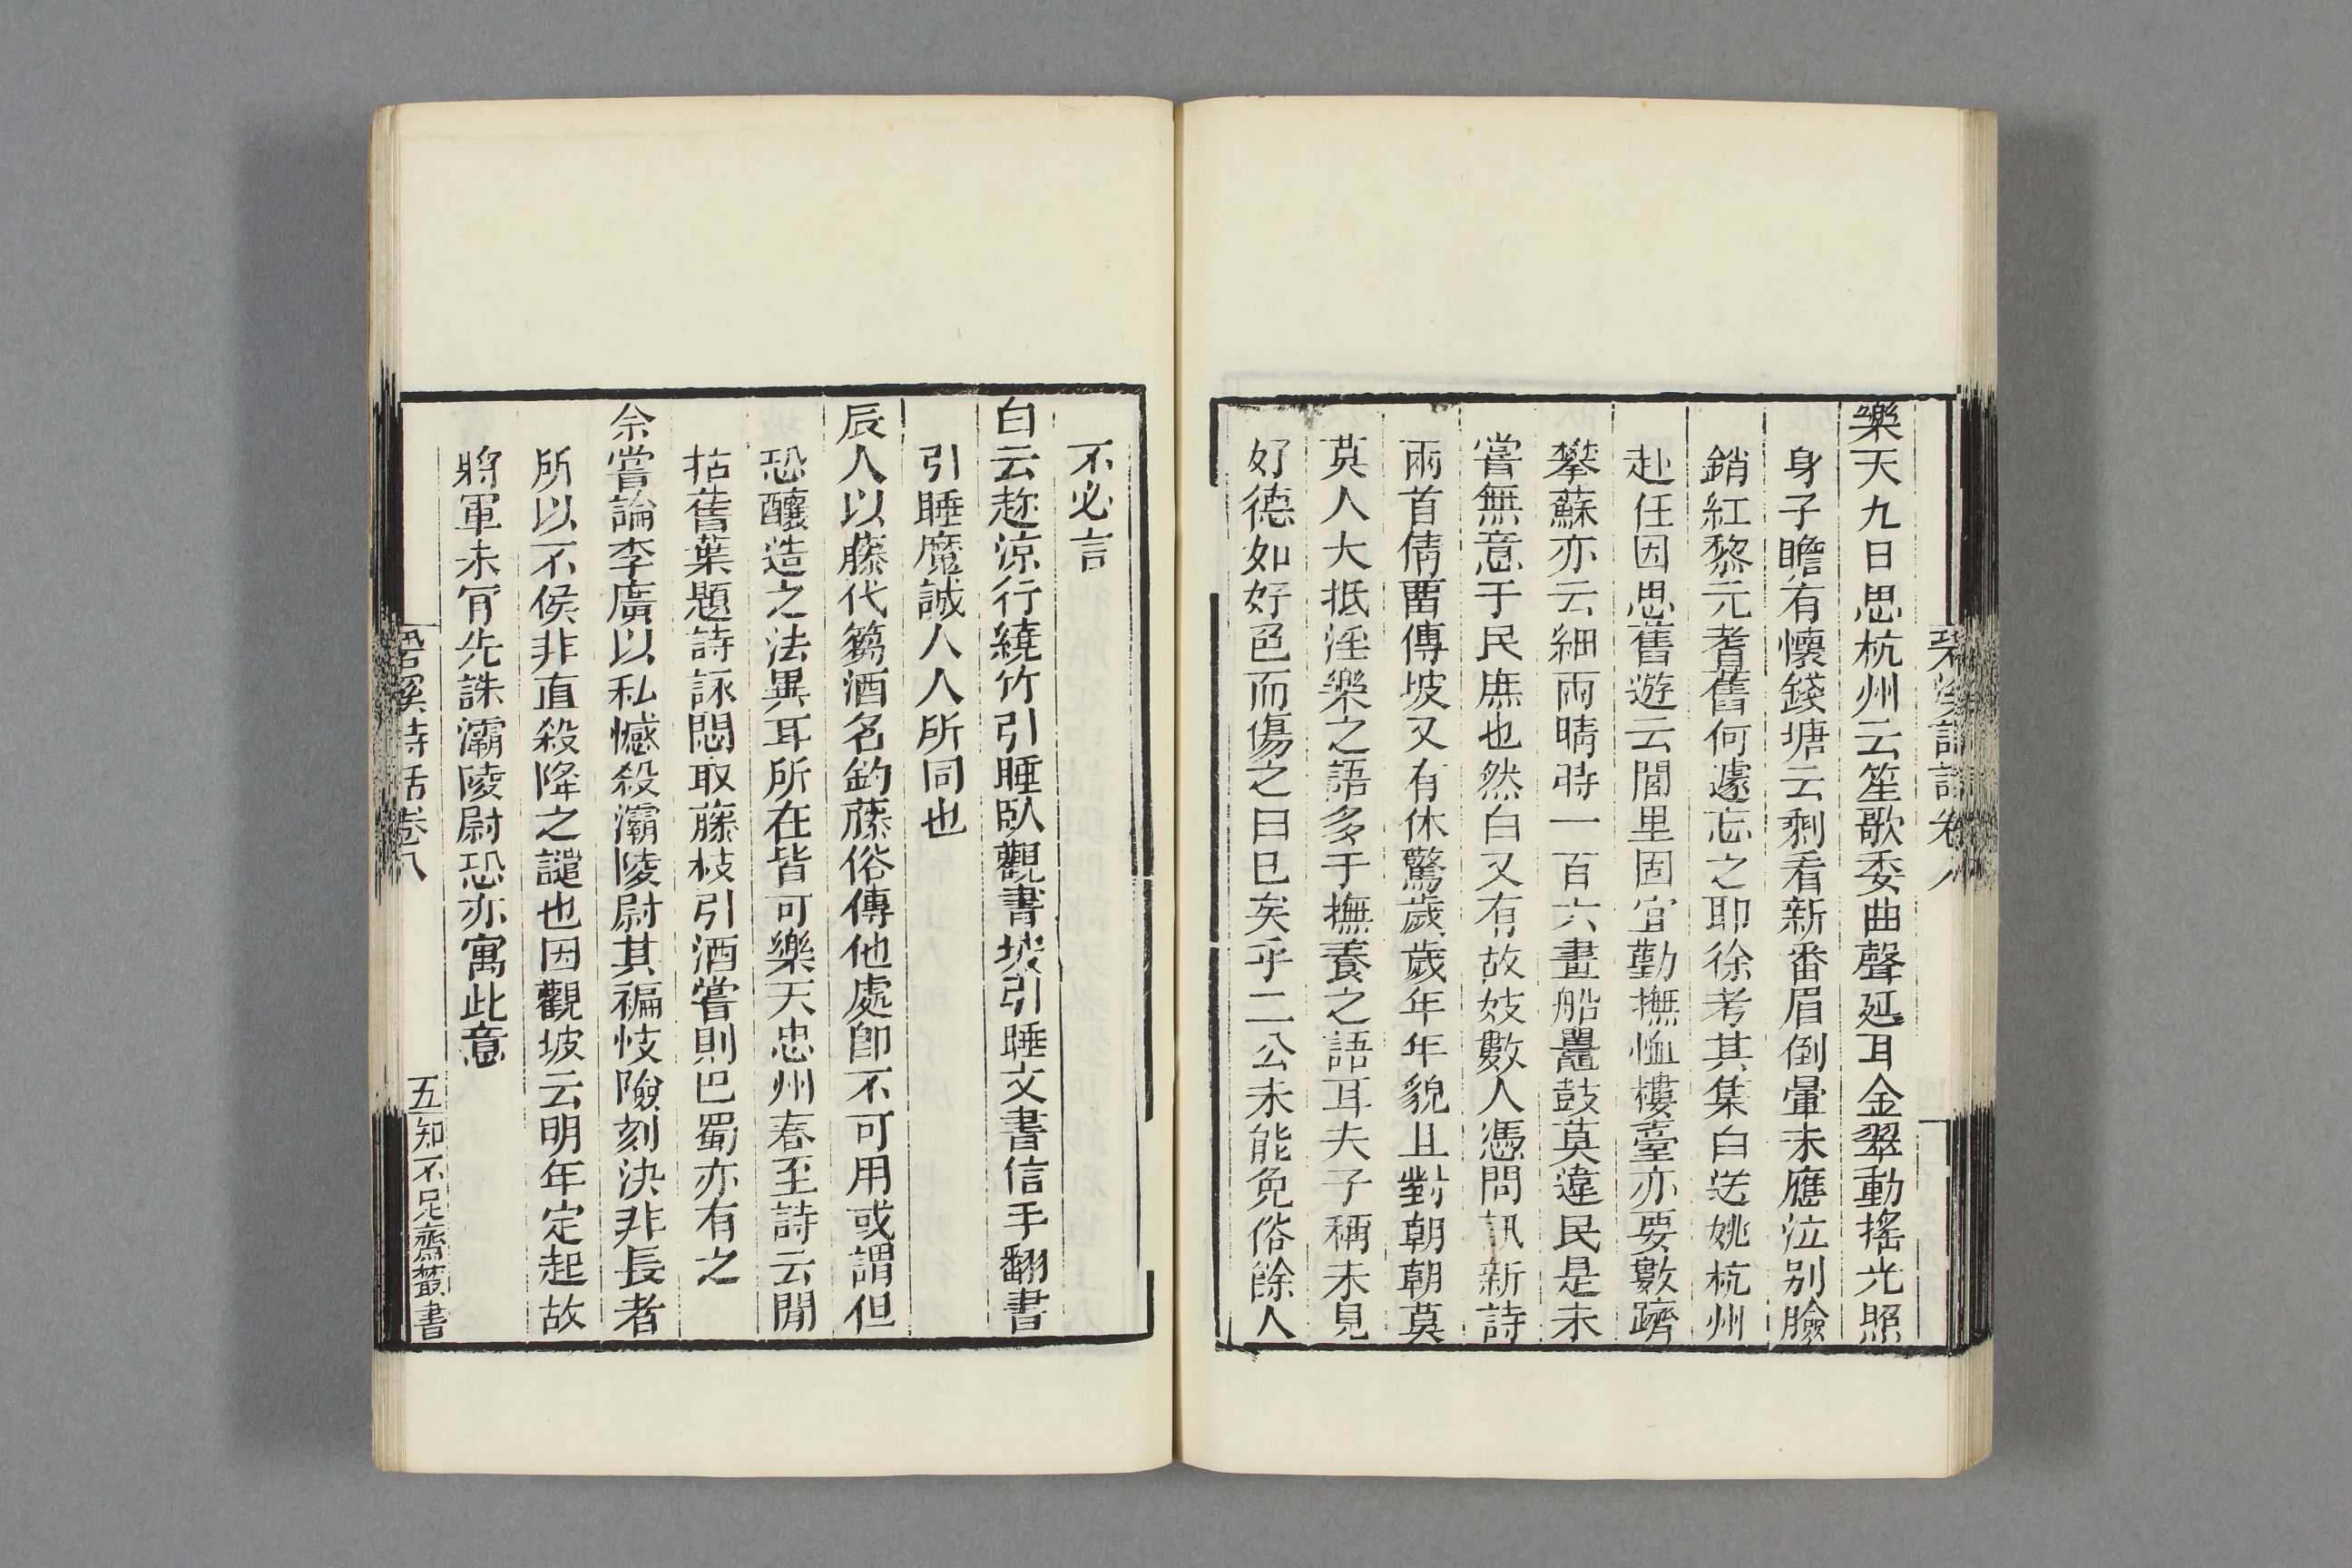 樂天九日思杭州云笙歌委曲聲延耳金翠動搖光照
身子瞻有懷錢塘云剩看新番眉倒暈未應泣别臉
銷紅黎元耆舊何遽忘之耶徐考其集白送姚杭州
赴任因思舊遊云閭里固宜勤撫恤樓臺亦要數躋
攀蘇亦云細雨晴時一百六畫船鼉鼓莫違民是未
嘗無意于民庶也然白又有故妓數人憑問訊新詩
兩首倩畱傳坡又有休驚歲歲年年貌且對朝朝莫
莫人大抵淫樂之語多于撫養之語耳夫子稱未見
好德如好色而傷之曰已矣乎二公未能免俗餘人
不必言
白云趂涼行繞竹引睡臥觀書坡引睡文書信手翻書
引睡魔誠人人所同也
辰人以藤代篘酒名釣藤俗傳他處卽不可用或謂但
恐釀造之法異耳所在皆可樂天忠州春至詩云閒
拈舊葉題詩詠悶取藤枝引酒嘗則巴蜀亦有之
余嘗論李廣以私憾殺灞陵尉其褊忮險刻決非長者
所以不侯非直殺降之譴也因觀坡云明年定起故
將軍未肎先誅灞陵尉恐亦寓此意
碧溪詩話卷八
五
知不足齋叢書